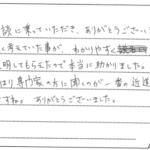 談に乗っていただき、ありがとうござい
く考えていた事が、わかりやすく
明してもらえたので本当に助かりました。
はり専門家の方に聞くのが一番の近道
ですね。 ありがとうございました。